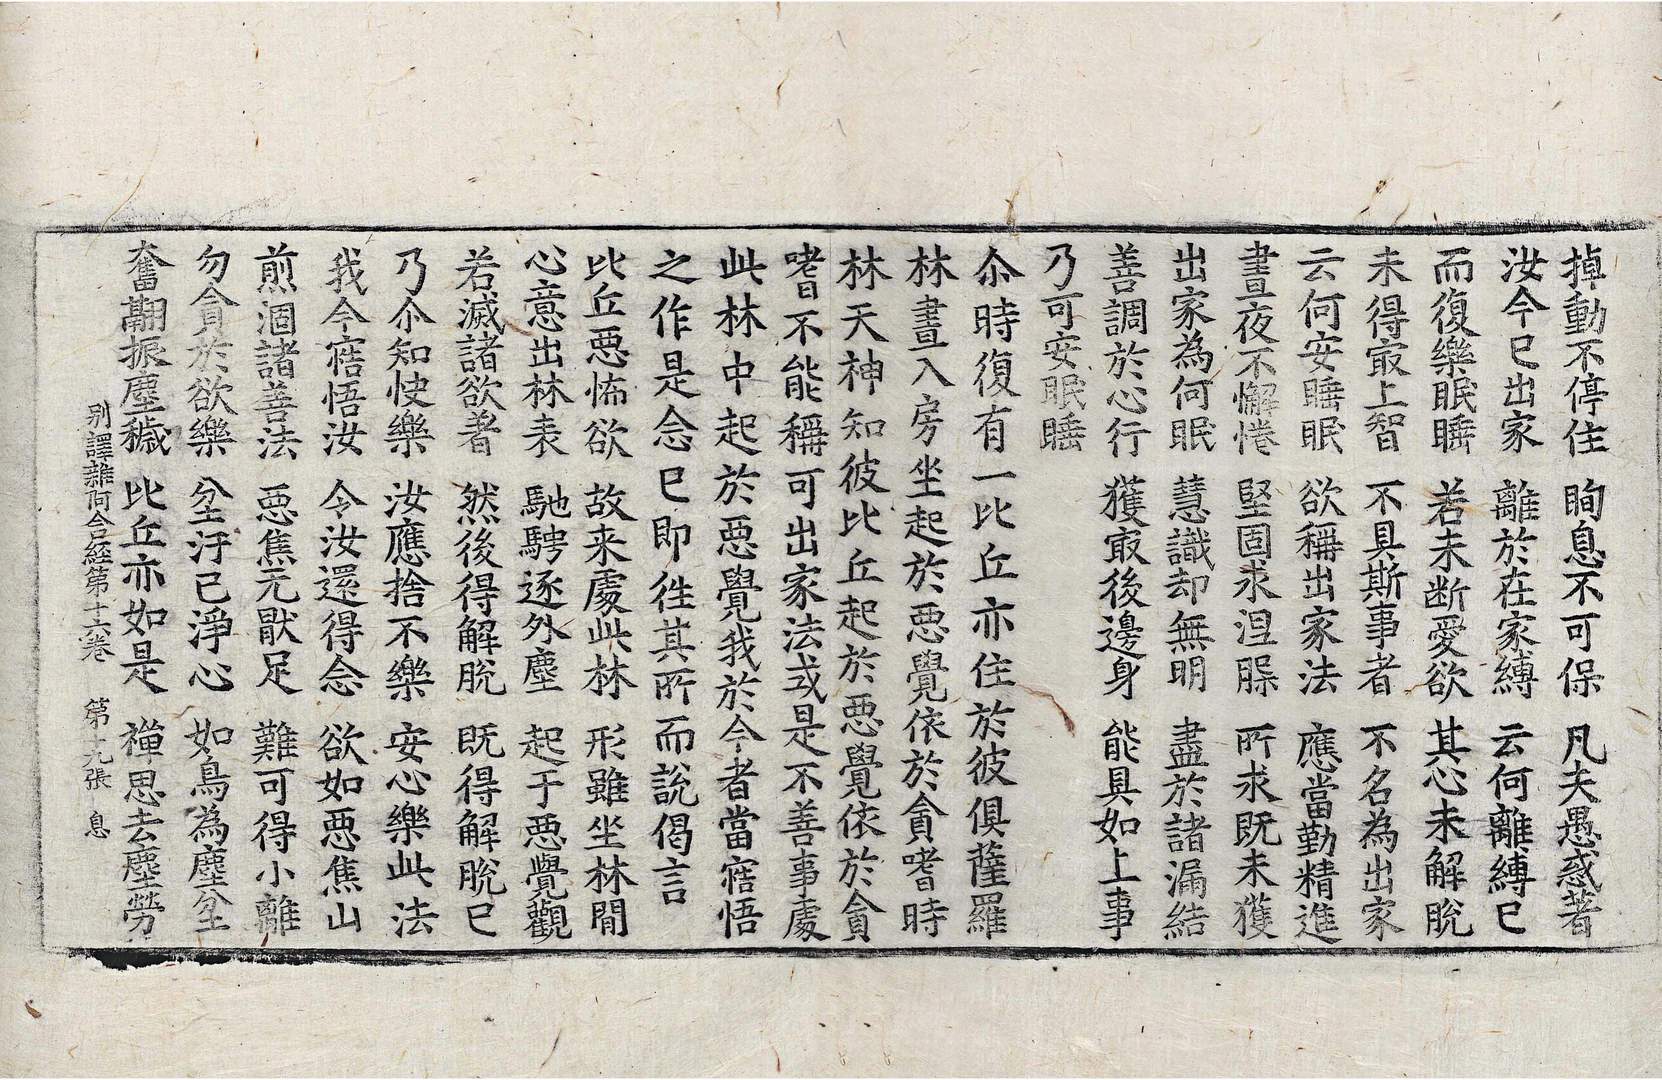 掉動不停住 眴息不可保 凡夫愚惑著
汝今已出家 離於在家縛 云何離縛已
而復樂眠睡 若未断愛欲 其心未解脫
未得㝡上智 不具斯事者 不名為出家
云何安睡眠 欲稱出家法 應當勤精進
晝夜不懈惓 堅固求涅𦡀 所求既未獲
出家為何眠 慧識却無明 盡於諸漏結
善調於心行 獲㝡後邊身 能具如上事
乃可安眠睡
尒時復有一比丘亦住於彼俱薩羅
林晝入房坐起於惡覺依於貪嗜時
林天神知彼比丘起於惡覺依於貪
嗜不能稱可出家法或是不善事處
此林中起於惡覺我於今者當寤悟
之作是念已即徃其所而說偈言
比丘惡怖欲 故来處此林 形雖坐林間
心意出林表 馳騁逐外塵 起于惡覺觀
若滅諸欲著 然後得解脫 既得解脫已
乃尒知快樂 汝應捨不樂 安心樂此法
我今寤悟汝 令汝還得念 欲如惡焦山
煎涸諸善法 惡焦无猒足 難可得小離
勿貪於欲樂 坌汙已淨心 如鳥為塵坌
奮翮振塵穢 比丘亦如是 禪思去塵勞
别譯雜阿含經第十六卷 第十九張 息